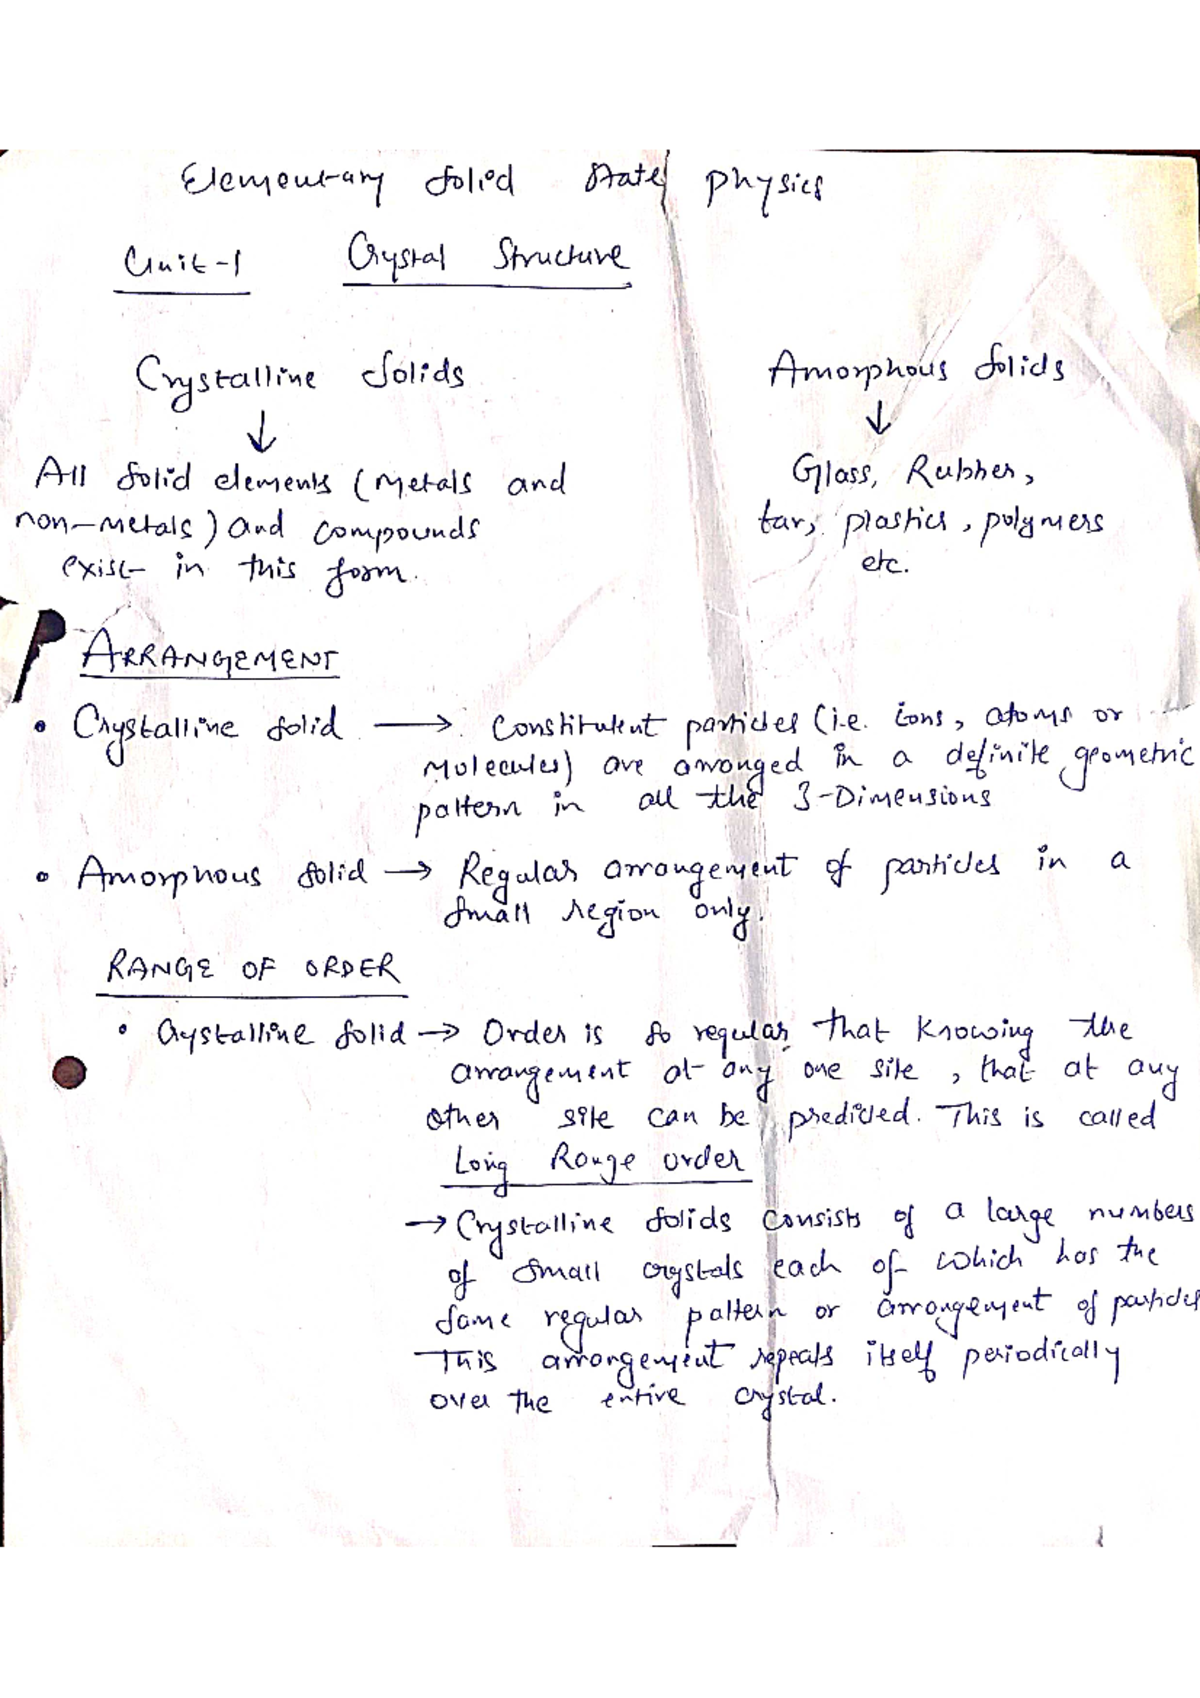 Elementary Solid State Physics
Unit-1 Crystal Structure
Crystalline Solids
↓
All Solid elements (metals and
non-metals) and compounds
exist in this form.
Amorphous Solids
↓
Glass, Rubber,
tar, plastics, polymers
etc.
ARRANGEMENT
• Crystalline Solid → Constituent particles (i.e. ions, atoms or
molecules) are arranged in a definite geometric
pattern in all the 3-Dimensions
• Amorphous Solid → Regular arrangement of particles in a
Small region only.
RANGE OF ORDER
• Crystalline Solid → Order is so regular that Knowing the
arrangement at any one site, that at any
other site can be predicted. This is called
Long Range order
→ Crystalline Solids consists of a large numbers
of Small crystals each of which has the
Same regular pattern or arrangement of particles
This arrangement repeats itself periodically
over the entire crystal.